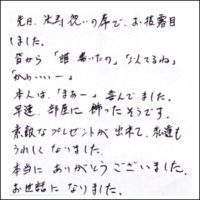 先日、出産祝いの席で、お披露目
しました。
皆から「頭 巻いたの」「なんてるね」
「かわいいー」
本人は、「まあー」喜んでました。
早速、部屋に飾ったそうです。
素敵なプレゼントが出来て、私達も
うれしくなりました。
本当にありがとうございました。
お世話になりました。